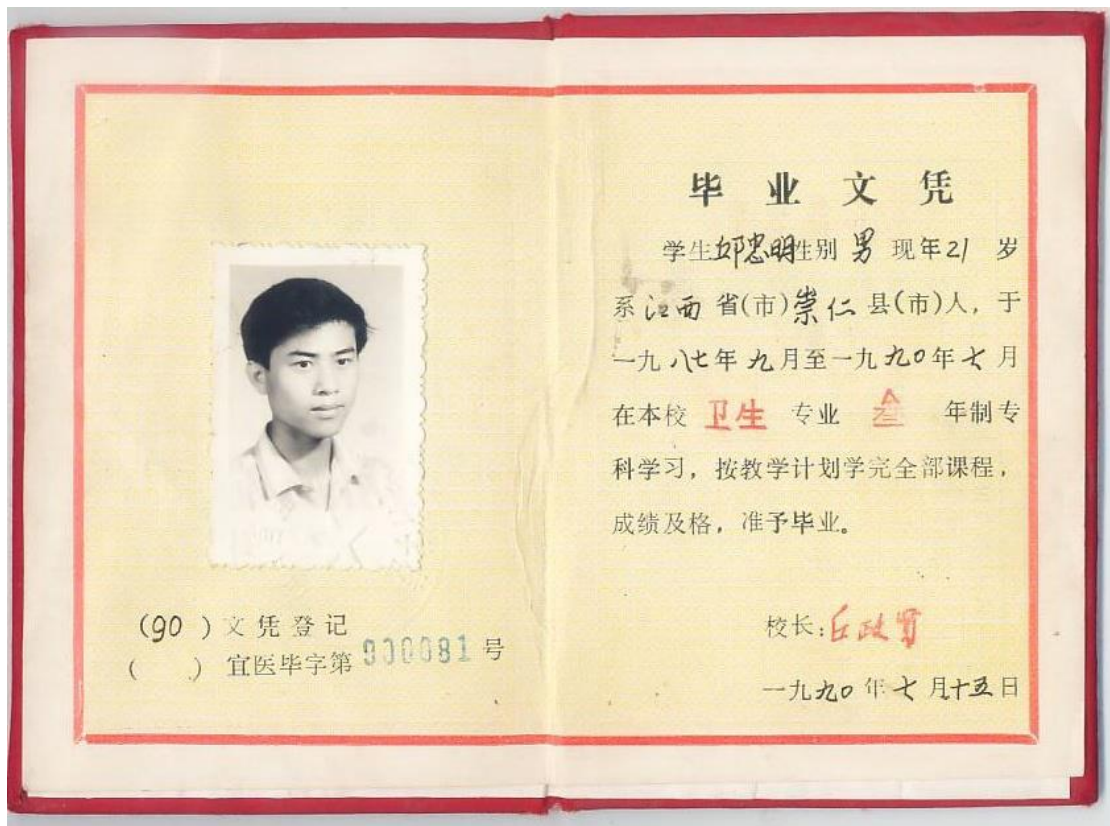 (90 )文凭登记
( )宜医毕字第900081号
毕业文凭
学生邱忠明性别男现年21岁
系江西省(市)崇仁县(市)人，于
一九八七年九月至一九九0年七月
在本校卫生专业叁年制专
科学习，按教学计划学完全部课程，
成绩及格，准予毕业。
校长：丘政贤
一九九0年七月十五日